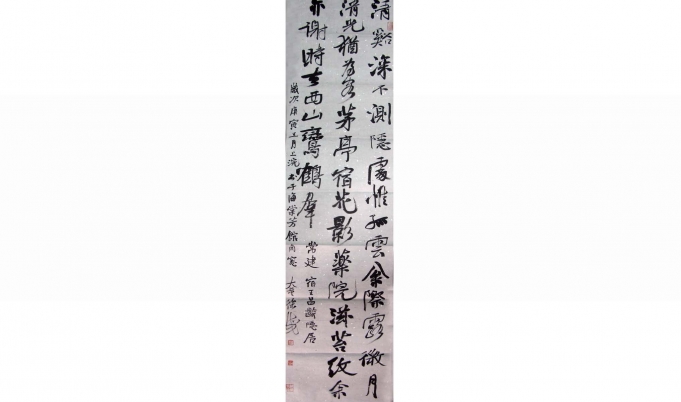 清谿深不測隱處惟孤雲枀際露微月
清光猶為君茅亭宿花影藥院滋苔紋余
亦謝時去西山鸞鶴羣
常建 宿王昌齡隱居
歲次庚寅 月上浣 芳館南窗